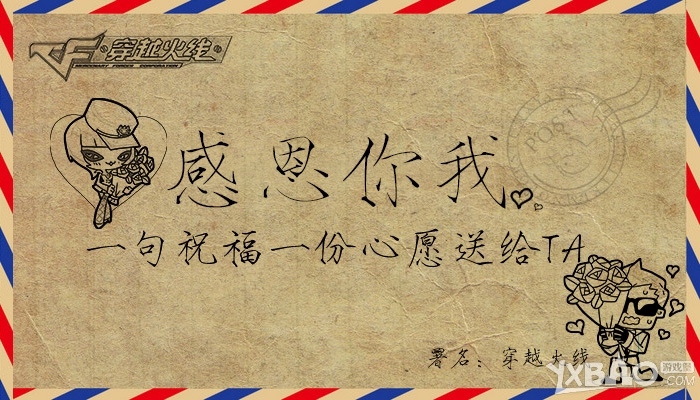 CF 穿越火线
感恩你我
一句祝福一份心愿送给TA
署名：穿越火线
YXBAO 游戏堡
.COM